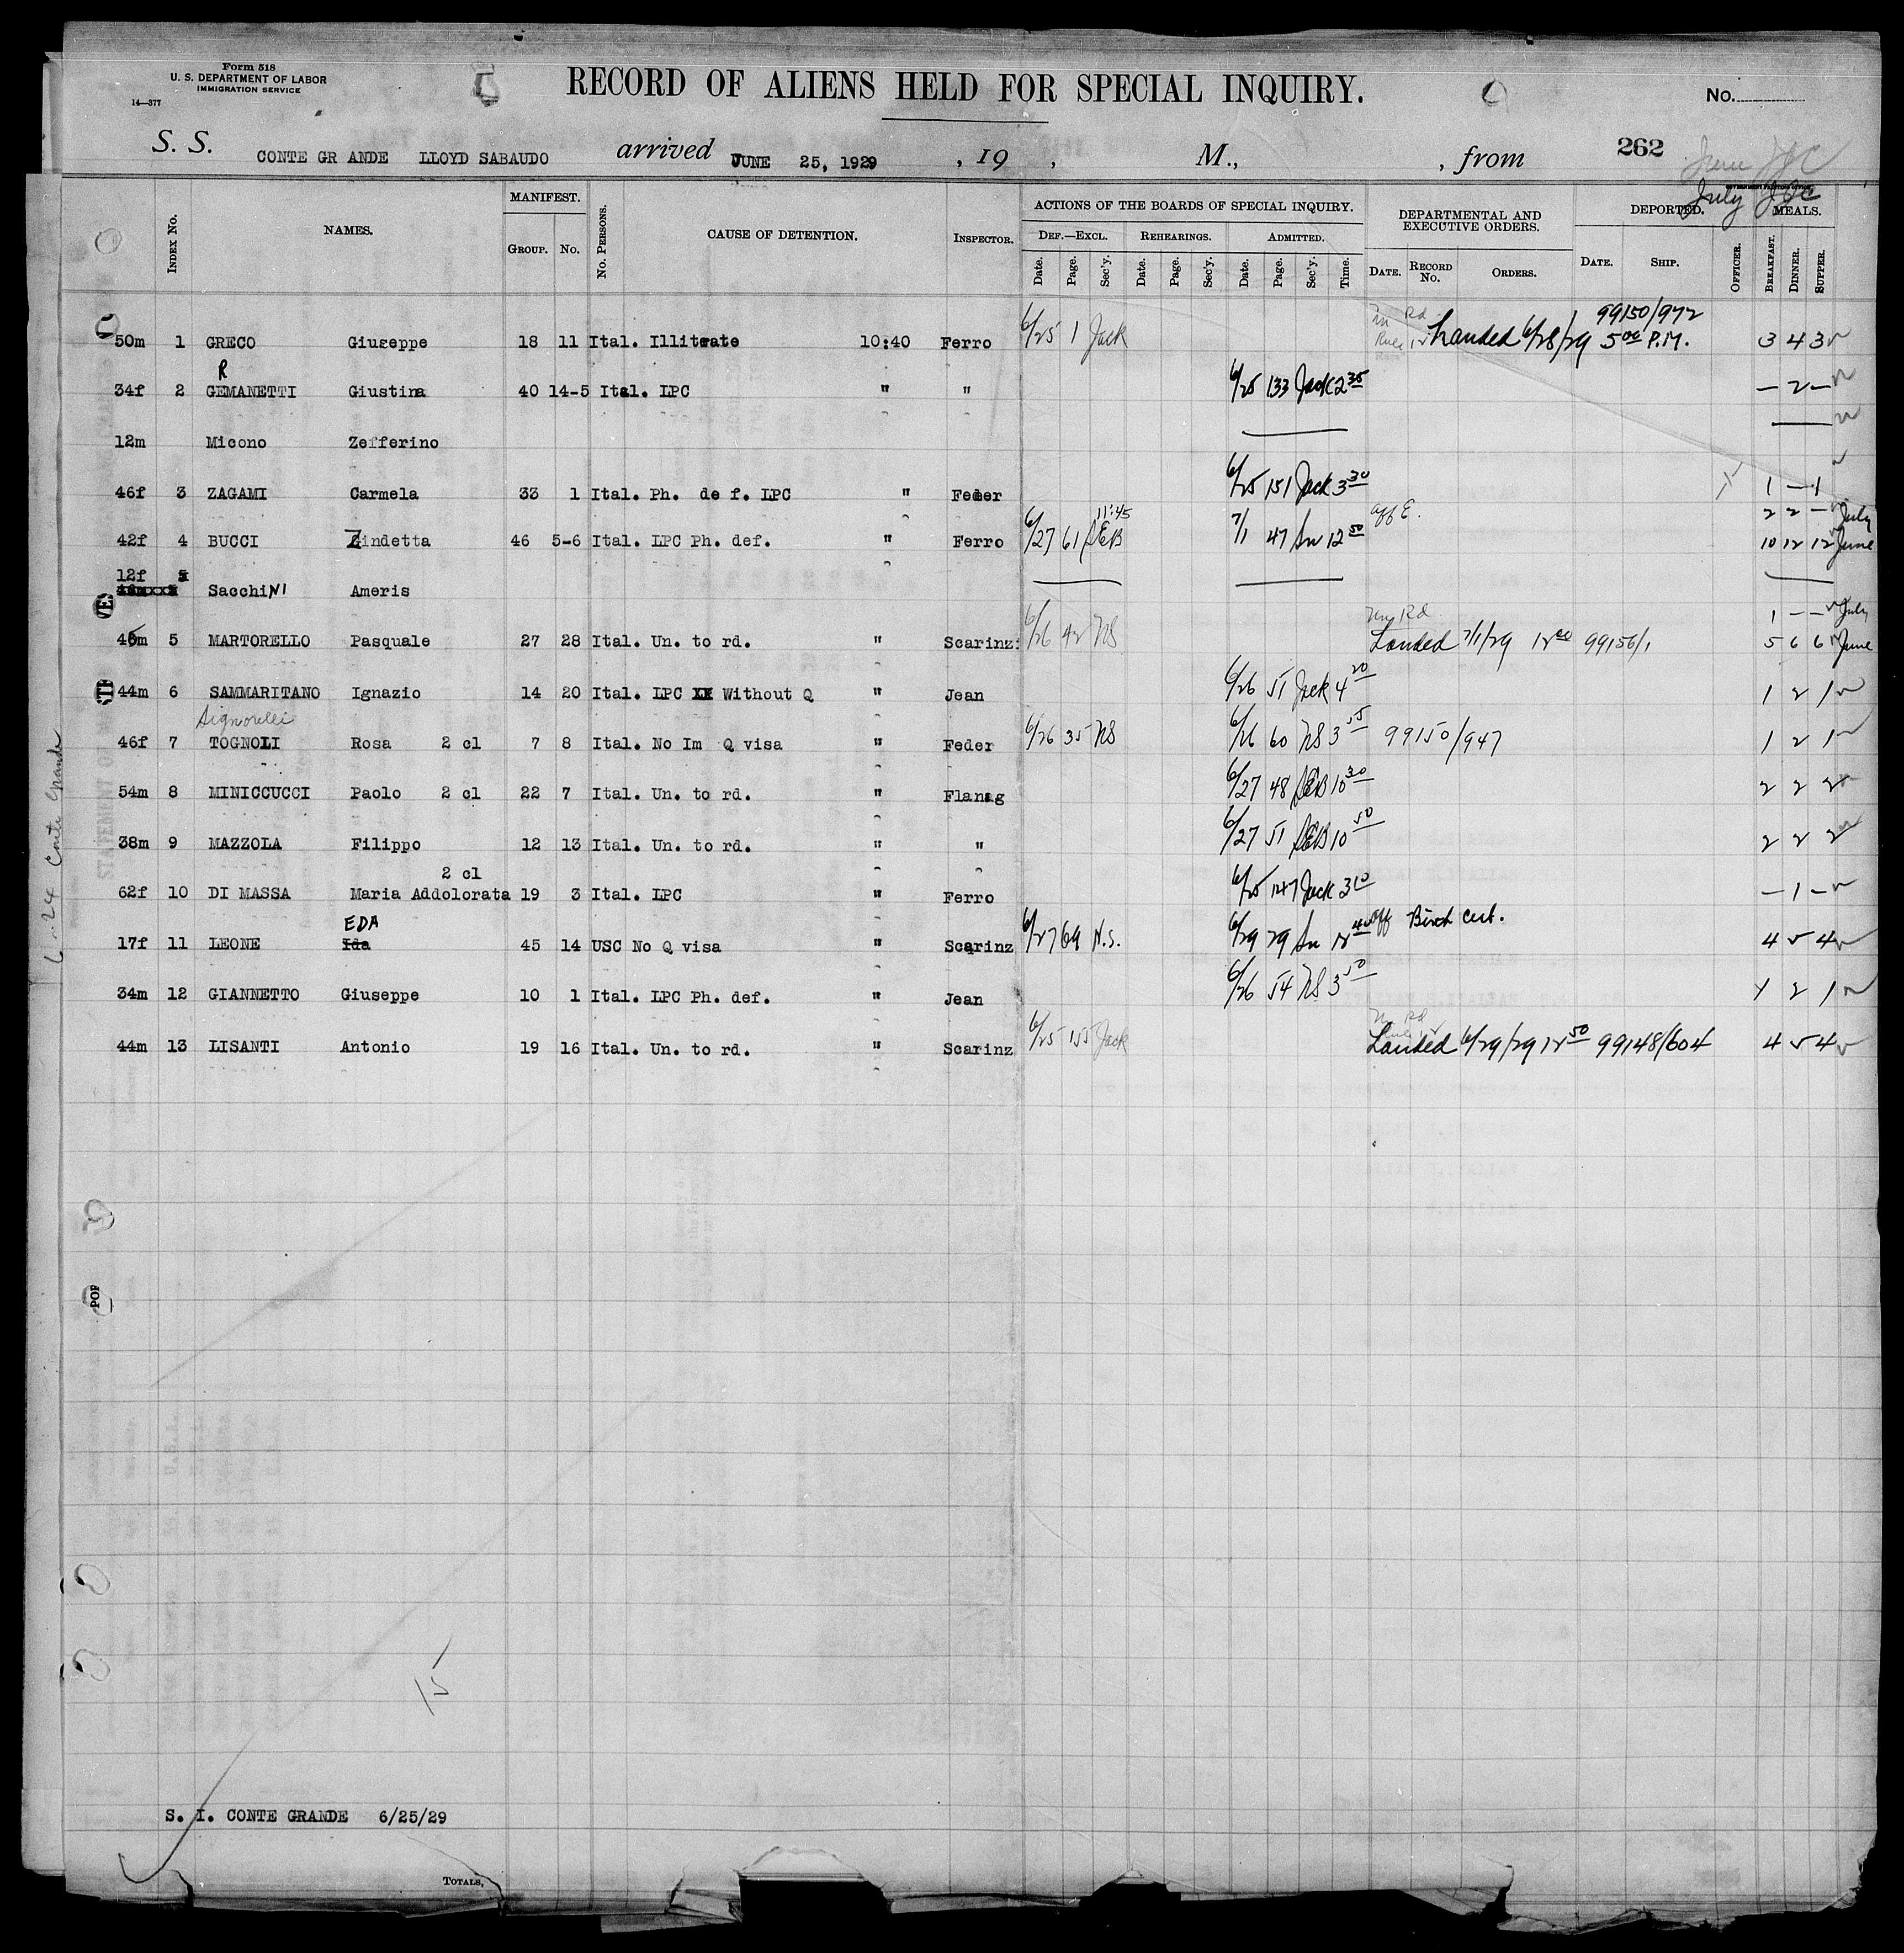 Form 518
U. S. DEPARTMENT OF LABOR
IMMIGRATION SERVICE
14—377
RECORD OF ALIENS HELD FOR SPECIAL INQUIRY.
No.
S. S. CONTE GR ANDE LLOYD SABAUDO arrived JUNE 25, 1929, 19 , M., , from 262
June JJC
July JJC
Index No. NAMES. MANIFEST. Group. No. No. Persons. CAUSE OF DETENTION. Inspector. ACTIONS OF THE BOARDS OF SPECIAL INQUIRY. Def.—Excl. Date. Page. Sec'y. Rehearings. Date. Page. Sec'y. Admitted. Date. Page. Sec'y. Time. DEPARTMENTAL AND EXECUTIVE ORDERS. Date. Record No. Orders. DEPORTED. Date. Ship. Officer. MEALS. Breakfast. Dinner. Supper.
99150/972
50m 1 GRECO Giuseppe 18 11 Ital. Illiterate 10:40 Ferro 6/25 1 Jack Landed 6/28/29 5 00 P.M. 3 4 3
R
34f 2 GEMANETTI Giustina 40 14-5 Ital. LPC " " 6/25 133 Jack 2 35 — 2 —
12m Micono Zefferino
46f 3 ZAGAMI Carmela 33 1 Ital. Ph. de f. LPC " Feder 6/25 151 Jack 3 30 1 — 1
11:45 aff E. 2 2 — July
42f 4 BUCCI Zindetta 46 5-6 Ital. LPC Ph. def. " Ferro 6/27 61 SEB 7/1 47 Sn 12 50 10 12 12 June
12f Sacchini Ameris
Rd 1 — — July
46m 5 MARTORELLO Pasquale 27 28 Ital. Un. to rd. " Scarinz 6/26 42 NS Landed 7/1/29 12 00 99156/1 5 6 6 June
44m 6 SAMMARITANO Ignazio 14 20 Ital. LPC Without Q " Jean 6/26 51 Jack 4 20 1 2 1
Signorelli
46f 7 TOGNOLI Rosa 2 cl 7 8 Ital. No Im Q visa " Feder 6/26 35 NS 6/26 60 NS 3 55 99150/947 1 2 1
54m 8 MINICCUCCI Paolo 2 cl 22 7 Ital. Un. to rd. " Flanag 6/27 48 SEB 10 30 2 2 2
38m 9 MAZZOLA Filippo 12 13 Ital. Un. to rd. " " 6/27 51 SEB 10 50 2 2 2
2 cl
62f 10 DI MASSA Maria Addolorata 19 3 Ital. LPC " Ferro 6/25 147 Jack 3 10 — 1 —
EDA
17f 11 LEONE Ida 45 14 USC No Q visa " Scarinz 6/27 69 N.S. 6/29 29 Sn 12 40 aff Birth cert. 4 5 4
34m 12 GIANNETTO Giuseppe 10 1 Ital. LPC Ph. def. " Jean 6/26 54 NS 3 50 1 2 1
44m 13 LISANTI Antonio 19 16 Ital. Un. to rd. " Scarinz 6/25 155 Jack Landed 6/29/29 12 50 99148/604 4 5 4
6-24 Conte Grande
15
S. I. CONTE GRANDE 6/25/29
Totals,